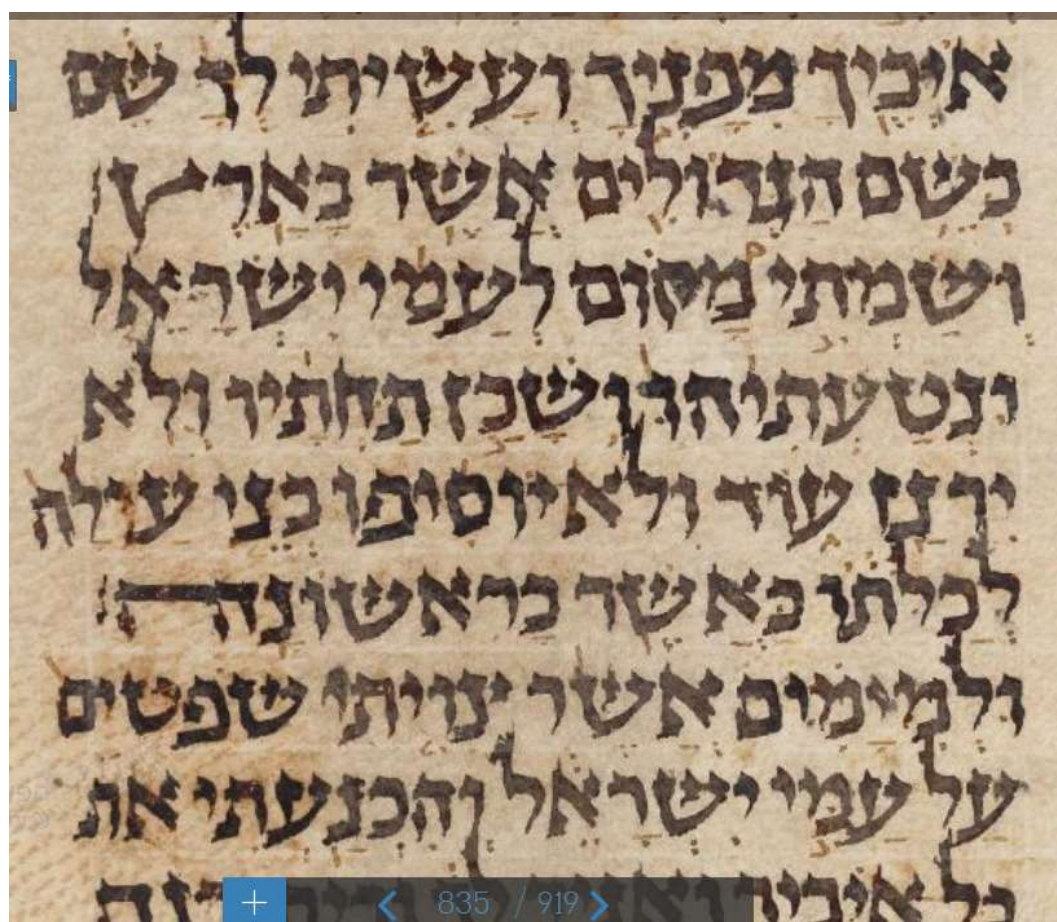 איביך מפניך ועשיתי לך שם
כשם הגדולים אשר בארץ׃
ושמתי מקום לעמי ישראל
ונטעתיהו ושכן תחתיו ולא
ירגז עוד ולא יוסיפו בני עולה
לבלתו כאשר בראשונה׃
ולמימים אשר צויתי שפטים
על עמי ישראל והכנעתי את
כל איביך
+ < 835 / 919 >